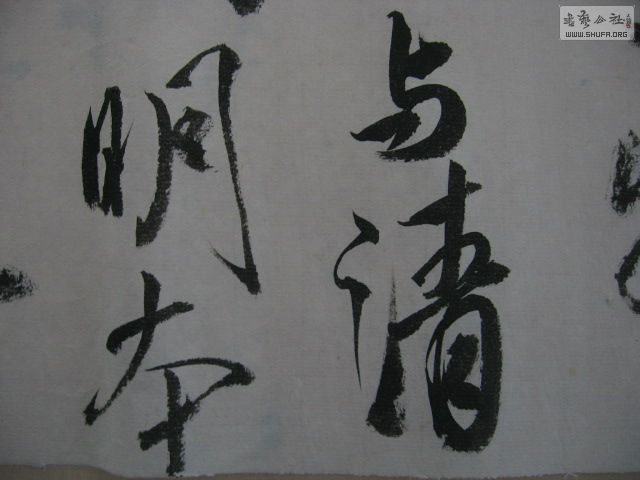 与清
明本
書藝公社
WWW.SHUFA.ORG